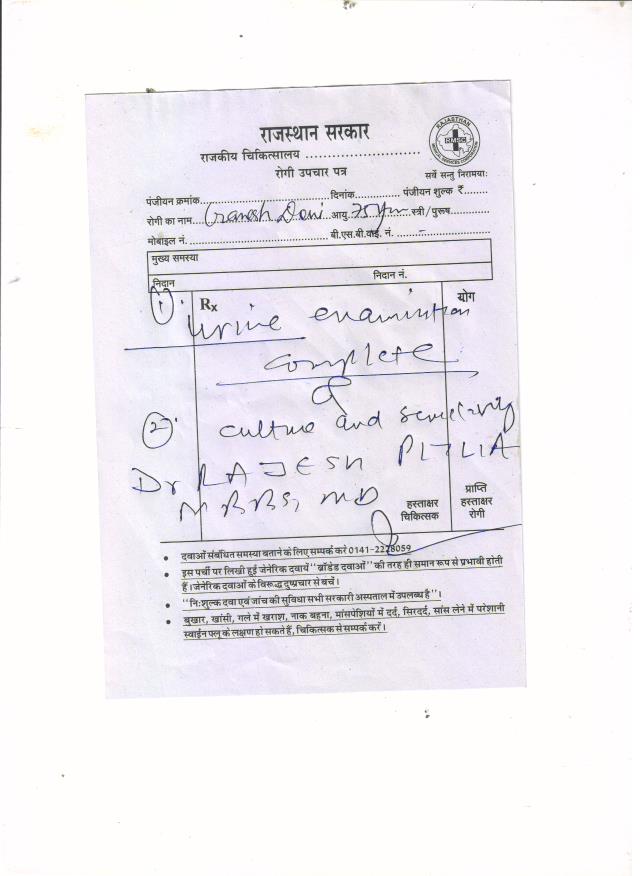 राजस्थान सरकार
राजकीय चिकित्सालय ............................
रोगी उपचार पत्र
RAJASTHAN
RMSC
MEDICAL SERVICES CORPORATION
सर्वे सन्तु निरामयाः
पंजीयन क्रमांक........................................दिनांक.............. पंजीयन शुल्क ₹........
रोगी का नाम... Ganesh Devi ...आयु. 75 yr स्त्री/पुरूष............
मोबाइल नं. .......................................... बी.एस.बी.वाई. नं. ..............................
मुख्य समस्या
निदान निदान नं.
1. Rx योग
Urine examination
complete
2. culture and sensitivity
Dr RAJESH PITLIA
MBBS, MD
हस्ताक्षर चिकित्सक
प्राप्ति हस्ताक्षर रोगी
• दवाओं संबंधित समस्या बताने के लिए सम्पर्क करे 0141-2228059
• इस पर्ची पर लिखी हुई जेनेरिक दवायें "ब्रांडेड दवाओं" की तरह ही समान रूप से प्रभावी होती
हैं। जेनेरिक दवाओं के विरूद्ध दुष्प्रचार से बचें।
• "निःशुल्क दवा एवं जांच की सुविधा सभी सरकारी अस्पताल में उपलब्ध है"।
• बुखार, खांसी, गले में खराश, नाक बहना, मांसपेशियों में दर्द, सिरदर्द, सांस लेने में परेशानी
स्वाईन फ्लू के लक्षण हो सकते हैं, चिकित्सक से सम्पर्क करें।